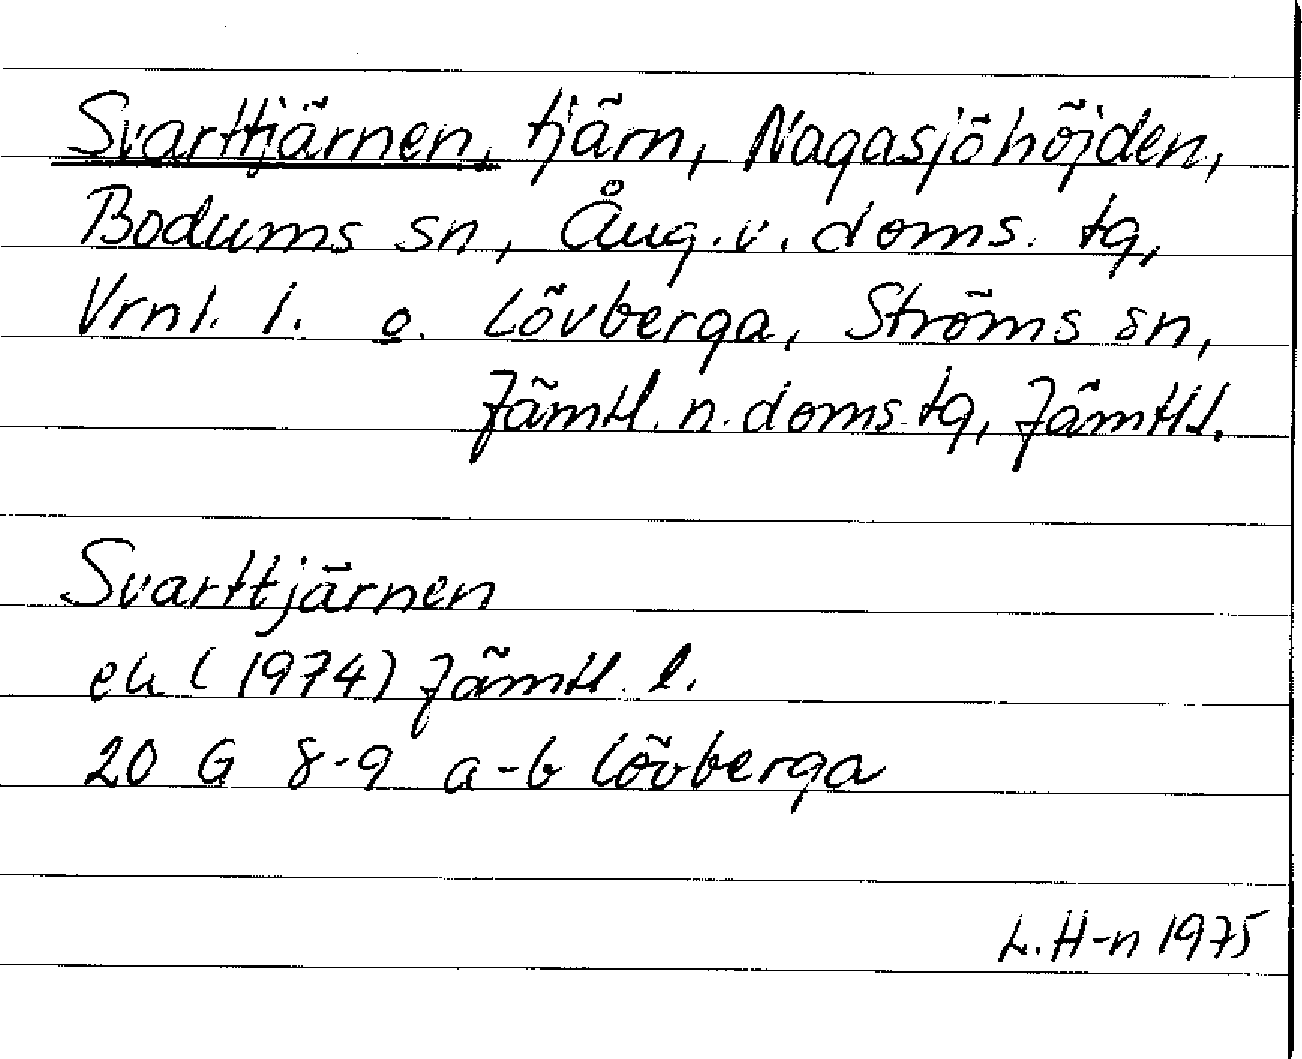 Svarttjärnen, tjärn, Nagasjöhöjden,
Bodums sn, Ång.v.doms. tg,
Vrnl. l. o. Lövberga, Ströms sn,
Jämtl.n.doms.tg, Jämtl l.
Svarttjärnen
ek (1974) Jämtl. l.
20 G 8-9 a-b Lövberga
L. H-n 1975